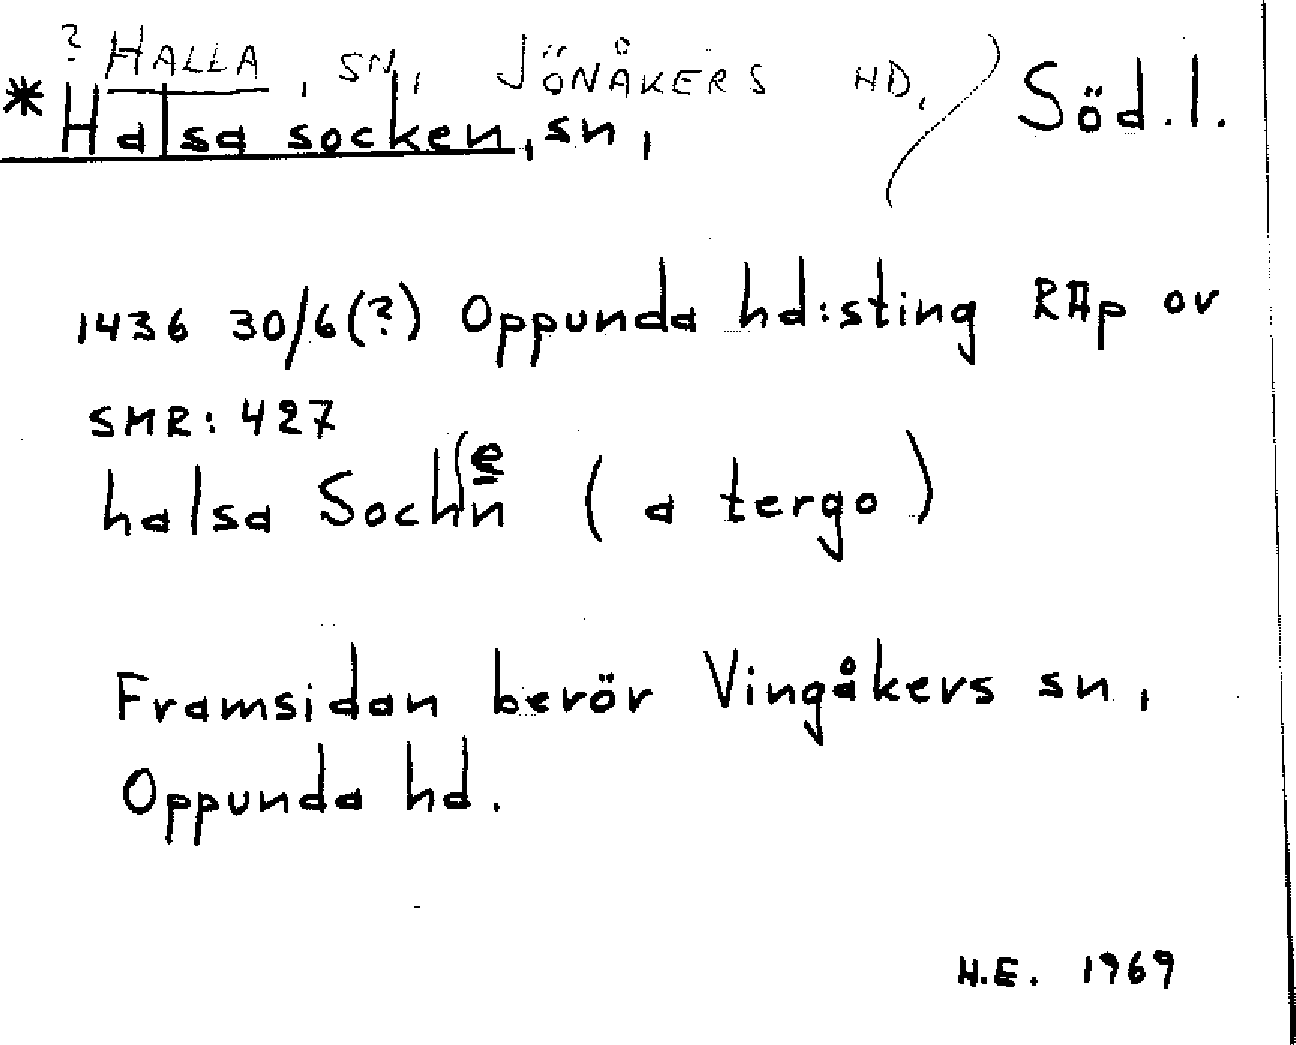 ? HALLA, SN, JÖNÅKERS HD,
*Halsa socken, sn, Söd.l.
1436 30/6(?) Oppunda hd:sting RAp or
SMR: 427
halsa Sochn (a tergo)
Framsidan berör Vingåkers sn,
Oppunda hd.
H.E. 1969